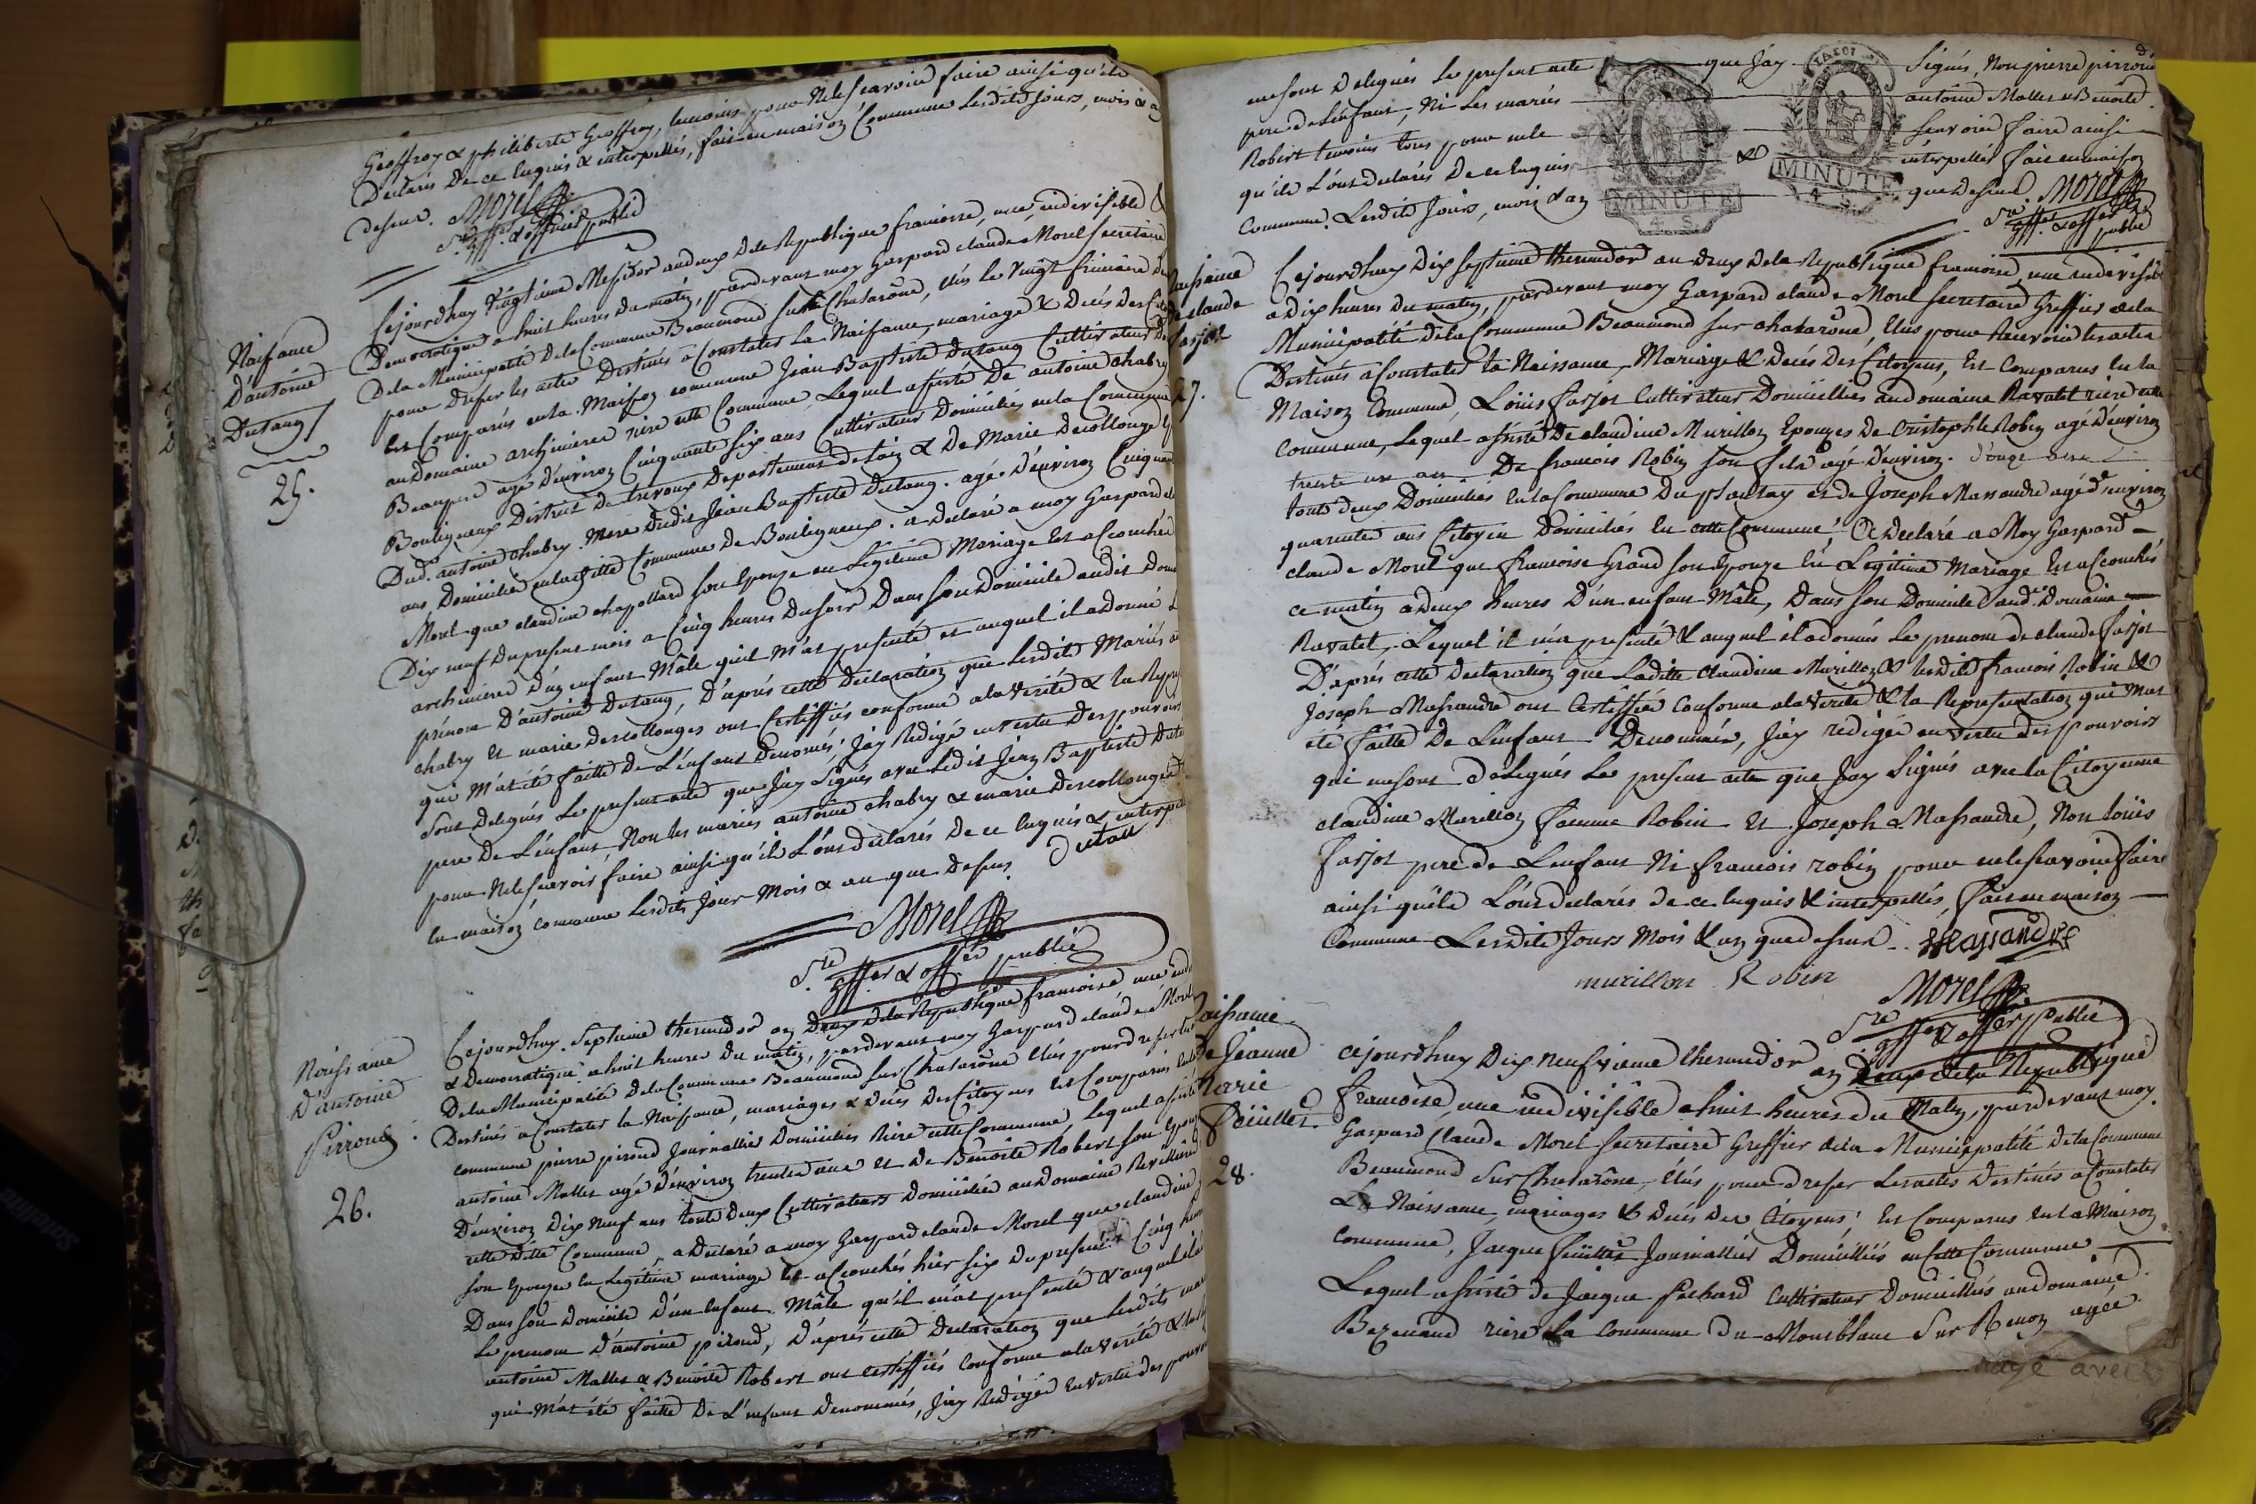 Geoffroy & philiberte Geoffroy, temoins pour ne le scavoire faire ainsi qu'ils
declarés de ce enquis & interpellés, fait en maison Commune lesdits jours, mois & an
dessus. Morel
Sre. gffer & officier public
Naissance
D'antoine
Dutang
25.
Cejourdhuy vingtième Messidor an deux de la Republique francoise, une, indivisible &
Democratique a huit heures du matin, pardevant moy Gaspard claude Morel secretaire
de la Municipalité de la Commune Beaumond sur Chalarône, élus le vingt frimaire
pour dresser les actes Destinés a Constater La Naissance, mariage & Decés des
Est Comparus en la Maison commune Jean Baptiste Dutang Cultivateur
au domaine archinieres rière cette Commune, Lequel assisté De antoine chabry
Beaupere agé d'environ Cinquante six ans Cultivateur Domiciliés en la Commune
Bouligneux District de trevoux Departement de L'ain & De Marie Decollonge
Dud. antoine chabry. Mere dudit Jean Baptiste Dutang. agé d'environ Cinquante
ans, Domicilié en ladite Commune de Bouligneux. a declaré a moy Gaspard
Morel que claudine chapollard son Epouze en Légitime Mariage Est accouchée
Dix neuf du present mois a Cinq heures du soir Dans son Domicile audit
archinieres d'un enfant Mâle quil m'at presenté et auquel il a donné
prénom D'antoine Dutang, D'aprés cette Déclaration que lesdits Mariés
chabry et marie descollonges ont Certiffiés conforme a la verité & la
qui m'at été faitte de L'enfant denomés, Jay Rédigé en vertu des pouvoirs
sont delegués Le present acte que Jay Signés avec Ledit Jean Baptiste
pere de L'enfant, Non les mariés antoine chabry & marie descollonges
pour Ne le scavoir faire ainsi qu'ils L'ont declarés de ce enquis & interpellés
en maison commune lesdits jour Mois & an que dessus.
Morel
Sre. gffer & offer public
Naissance
D'antoine
Piroud
26.
Cejourdhuy. Septieme thermidor an Deux de la Republique francoise une
& Democratique a huit heures du matin, pardevant moy Gaspard claude Morel
de la Municipalité de la Commune Beaumond sur Chalarône élus pour dresser les
Destinés a Constater la Naissance, mariages & decés des Citoyens Est Comparus
commune pierre piroud Journallier Domiciliés Rière cette Commune, Lequel assisté
antoine Mallet agé d'environ trente ans et de Benoite Robert son
D'environ Dix Neuf ans tous deux Cultivateurs domiciliés au Domaine
cette ditte Commune, a Declaré a moy Gaspard claude Morel que claudine
son Epouze en Legitime mariage Est accouchés hier six du present
Dans son domicile d'un Enfant Mâle qu'il m'at presenté & auquel
Le prenom d'antoine piroud, D'aprés cette Declaration que lesdits
antoine Mallet & Benoite Robert ont certiffiés Conforme a la verité &
qui m'at été faitte De L'enfant denommés, Jay Rédigé en vertu des
me sont delegués Le present acte que Jay Signés, Non pierre pirroud
pere de L'enfant, Ni Les mariés antoine Mallet & Benoite
Robert temoins tous pour ne le scavoire faire ainsi
qu'ils L'ont declarés De ce enquis & interpellés fait en maison
Commune. Lesdits Jours, mois & an que dessus. Morel
Sre. gffer & offer public
MINUTE
4. S.
MINUTE
4. S.
Naissance
de claude
farjot
27.
Cejourdhuy Dix septieme thermidor an deux de la Republique francoise, une indivisible
a dix heures du matin, pardevant moy Gaspard claude Morel secretaire Greffier de la
Municipalité de la Commune Beaumond sur chalarône, élus pour Recevoir les actes
Destinés a Constater la Naissance, Mariage & decés des Citoyens, Est Comparus en la
Maison Commune, Loüis farjot Cultivateur Domiciliés au domaine Ravatet rière cette
Commune, Lequel assisté De claudine Murillon Epouzes de Cristophle Robin agé d'environ
trente un an De francois Robin son fils agé d'environ. douze ans
tout deux Domiciliés en la Commune Du plantay et de Joseph Massandre agé d'environ
quarante ans Citoyen Domiciliés En cette Commune, a declaré a Moy Gaspard
claude Morel que francoise Grand son Epouze En Légitime Mariage Est accouchés
ce matin a deux heures D'un enfant Mâle, Dans son Domicile aud. Domaine
Ravatet, Lequel il m'a presenté & auquel il a donnés Le prenom de claude farjot
D'aprés cette Declaration que Laditte claudine Murillon & lesdits francois Robin &
Joseph Massandre ont Certiffiés Conforme a la verité & la Representation qui m'at
été faitte De L'enfant Denommés, Jay rédigée en vertu des pouvoirs
qui me sont delegués Le present acte que Jay Signés avec la Citoyenne
claudine Murillon femme Robin Et Joseph Massandre, Non Loüis
farjot pere de L'enfant Ni francois robin pour ne le scavoire faire
ainsi qu'ils L'ont declarés de ce enquis & interpellés, fait en maison
Commune Lesdits Jours Mois & an que dessus. Massandre
murillon Robin
Morel
Sre gffer & offer public
Naissance
de Jeanne
Marie
28.
Cejourdhuy Dix neufvieme thermidor an Deux de la Republique
francoise, une indivisible a huit heures du Matin, pardevant moy
Gaspard Claude Morel secretaire Greffier de la Municipalité de la Commune
Beaumond Sur Chalarône, élus pour dresser Les actes Destinés a Constater
La Naissance, mariages & decés des Citoyens, Est Comparus en la Maison
Commune, Jacque Journallier Domiciliés en cette Commune
Lequel assisté de Jacque Cultivateur Domiciliés au domaine
rière La commune du Montblanc Sur Renon agée
rayé avec